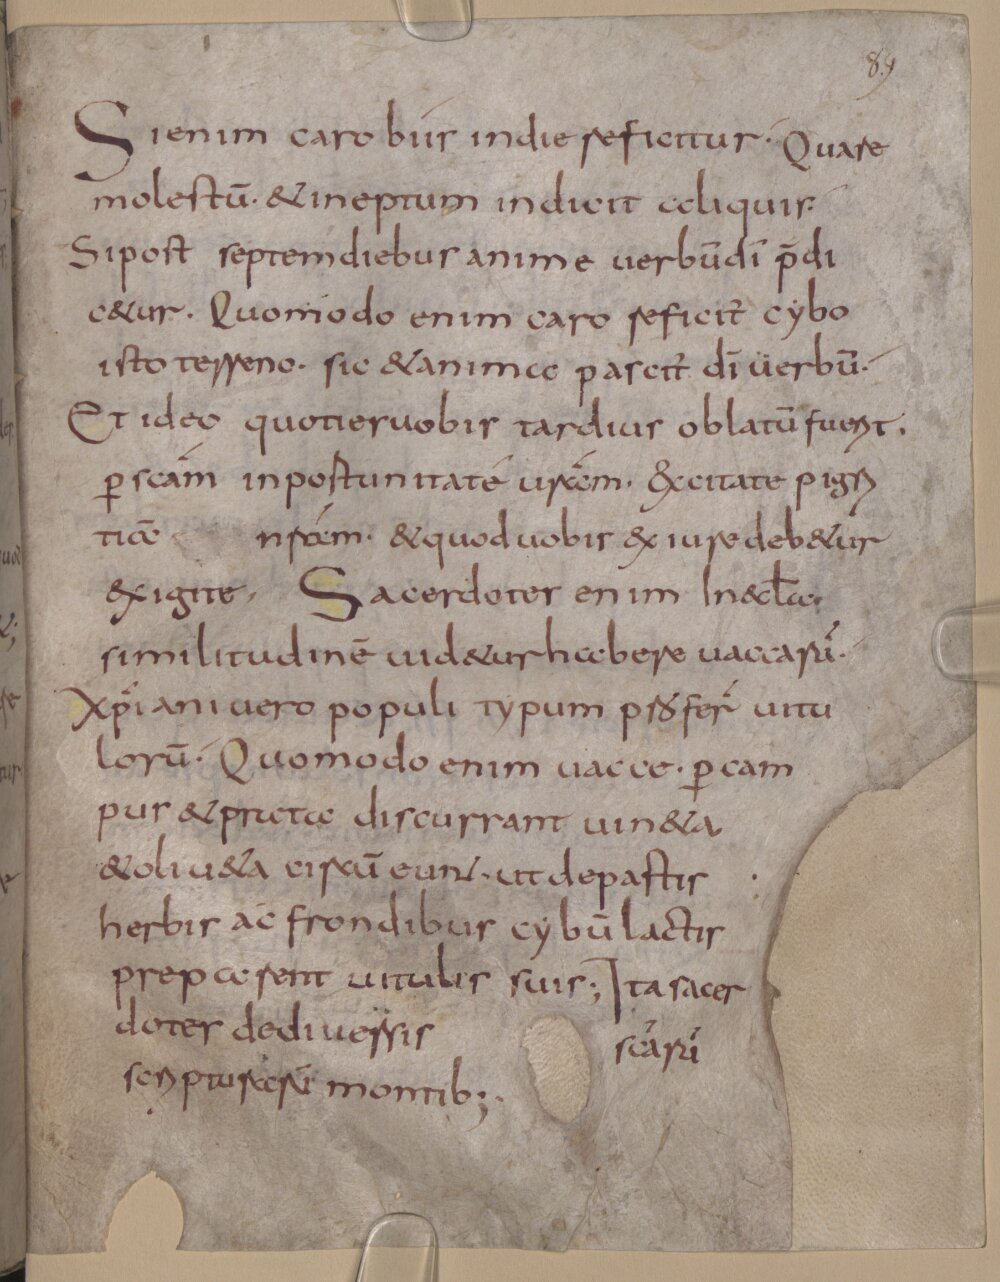 89
Si enim caro bis in die reficitur. Quare
molestū. & ineptum indicit aliquis.
Si post septem diebus anime uerbū dī p̄di
c&ur. Quomodo enim caro reficit̄ cybo
isto terreno. sic & anima pascit̄ dī uerbū.
Et ideo quotiens uobis tardius oblatū fuerit.
ꝑ scām inportunitatē urām. excitate pigri
tia nrām. & quod uobis ex iure deb&ur
exigite. Sacerdotes enim In eccl̄a
similitudinē uid&ur habere uaccarū.
Xp̄iani uero populi typum p̄ferr̄ uitu
lorū. Quomodo enim uacce. ꝑ cam
pus & prata discurrant uin&a
& oliu&a circū eunt. ut de pastis
herbis ac frondibus cybū lactis
preparent uitulis suis; Ita sacer
dotes de diuersis scārū
scripturarū montib;.